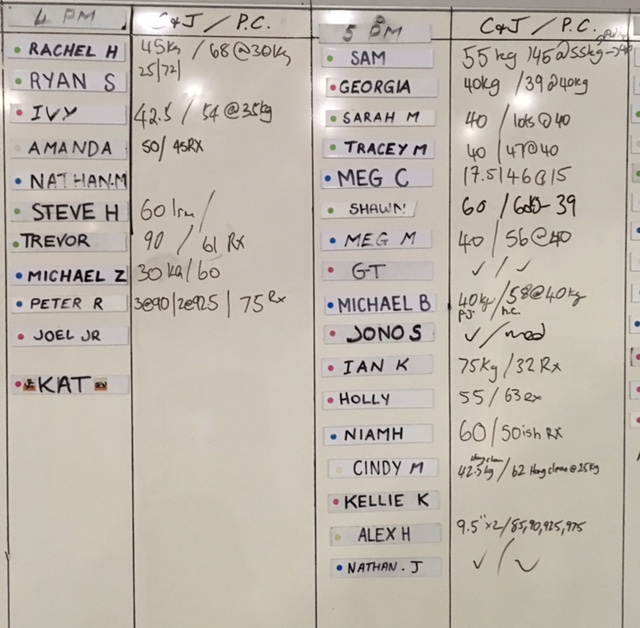 4 PM C&J / P.C.
RACHEL H 45kg / 68@30kg
25/72/
RYAN S
IVY 42.5 / 54 @35kg
AMANDA 50/ 45RX
NATHAN.M
STEVE H 60 /
TREVOR 90 / 61 Rx
MICHAEL Z 30 kg/60
PETER R 3@90/2@925 / 75 Rx
JOEL JR
KAT
5 PM C&J / P.C.
SAM 55 kg /45@55kg
GEORGIA 40kg /39@40kg
SARAH M 40 / lots@40
TRACEY M 40 / 47@40
MEG C 17.5/46@15
SHAWN 60 / 39
MEG M 40 / 56@40
GT ✓ / ✓
MICHAEL B 40kg / 58@40kg
P.J. h.c.
JONO S ✓ / mod
IAN K 75kg / 32 Rx
HOLLY 55 / 63 Rx
NIAMH 60 / 50ish Rx
Hang clean
CINDY M 42.5kg / 62 Hang clean @25kg
KELLIE K
ALEX H 9.5"x2/85,90,925,975
NATHAN.J ✓ / ✓